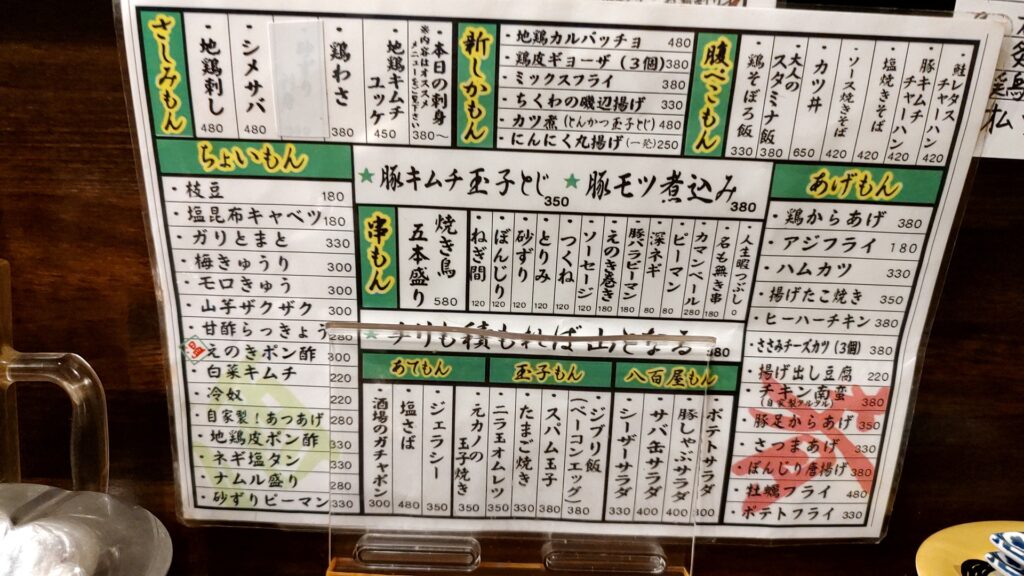 さしみもん
・地鶏刺し 480
・シメサバ 480
・鶏わさ 380
・地鶏キムチユッケ 450
・本日の刺身 380〜
※内容はオススメ
メニューをご覧下さい
新しかもん
・地鶏カルパッチョ 480
・鶏皮ギョーザ(3個) 380
・ミックスフライ 380
・ちくわの磯辺揚げ 330
・カツ煮(とんかつ玉子とじ) 480
・にんにく丸揚げ(一花) 250
腹ぺこもん
・鶏そぼろ飯 330
・大人のスタミナ飯 380
・カツ丼 650
・ソース焼きそば 420
・塩焼きそば 420
・豚キムチチャーハン 420
・鮭レタスチャーハン 420
ちょいもん
・枝豆 180
・塩昆布キャベツ 180
・ガリとまと 330
・梅きゅうり 300
・モロきゅう 300
・山芋ザクザク 300
・甘酢らっきょう 280
・えのきポン酢 300
・白菜キムチ 220
・冷奴 220
・自家製!あつあげ 280
・地鶏皮ポン酢 330
・ネギ塩タン 330
・ナムル盛り 300
・砂ずりピーマン 330
★豚キムチ玉子とじ 350
★豚モツ煮込み 380
串もん
焼き鳥五本盛り 580
・ねぎ間 120
・ぼんじり 120
・砂ずり 120
・とりみ 120
・つくね 120
・ソーセージ 120
・えのき巻き 180
・豚バラピーマン 180
・深ネギ 80
・ピーマン 80
・カマンベール 280
・名も無き串 180
・人生暇つぶし 0
★チリも積もれば山となる 380
あてもん
・酒場のガチャポン 300
・塩さば 480
・ジェラシー 350
玉子もん
・元カノの玉子焼き 350
・ニラ玉オムレツ 350
・たまご焼き 350
・スパム玉子 380
・ジブリ飯(ベーコンエッグ) 300
八百屋もん
・シーザーサラダ 400
・サバ缶サラダ 400
・豚しゃぶサラダ 400
・ポテトサラダ 300
あげもん
・鶏からあげ 380
・アジフライ 180
・ハムカツ 330
・揚げたこ焼き 350
・ヒーハーチキン 380
・ささみチーズカツ(3個) 380
・揚げ出し豆腐 220
・チキン南蛮 380
(自家製タルタル)
・豚足からあげ 350
・さつまあげ 330
・ぼんじり唐揚げ 380
・牡蠣フライ 480
・ポテトフライ 330